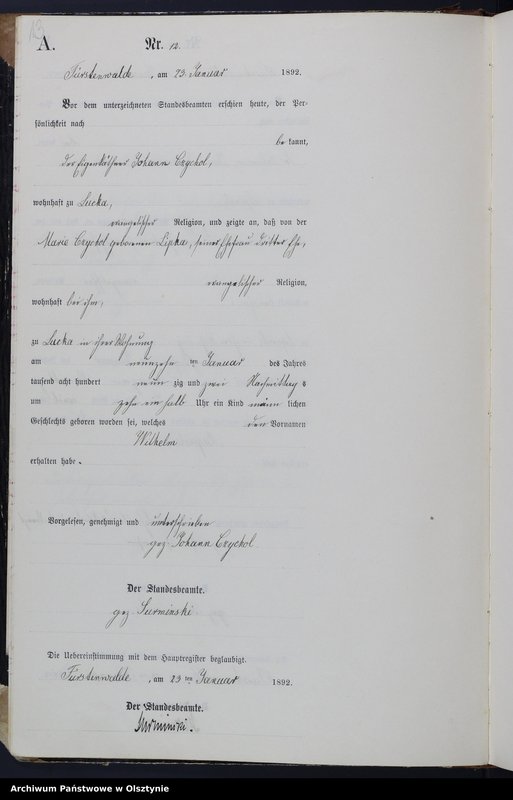 A.
Nr. 12.
Fürstenwalde, am 23. Januar 1892.
Vor dem unterzeichneten Standesbeamten erschien heute, der Per-
sönlichkeit nach
be kannt,
der Eigenkäthner Johann Czychol,
wohnhaft zu Lucka,
evangelischer Religion, und zeigte an, daß von der
Marie Czychol geborenen Lipka, seiner Ehefrau dritter Ehe,
evangelischer Religion,
wohnhaft bei ihm,
zu Lucka in ihrer Wohnung
am neunzehn ten Januar des Jahres
tausend acht hundert neun zig und zwei Nachmittags
um zehn ein halb Uhr ein Kind männ lichen
Geschlechts geboren worden sei, welches den Vornamen
Wilhelm
erhalten habe.
Vorgelesen, genehmigt und unterschrieben
gez. Johann Czychol.
Der Standesbeamte.
gez. Surminski
Die Uebereinstimmung mit dem Hauptregister beglaubigt.
Fürstenwalde, am 23 ten Januar 1892.
Der Standesbeamte.
Surminski.
Archiwum Państwowe w Olsztynie